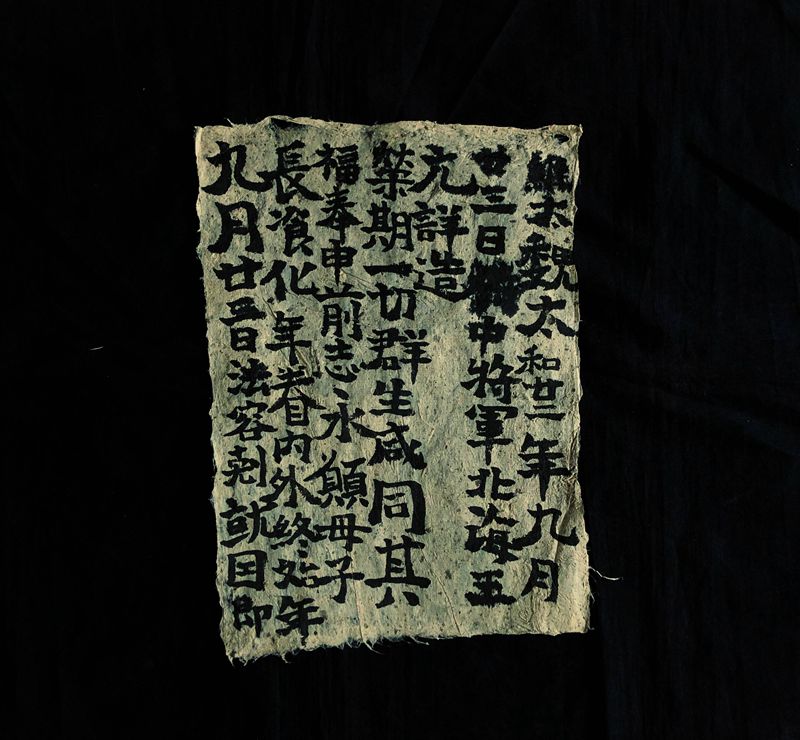 維太魏太和廿二年九月
廿三日中將軍北海王
元詳造
榮期一切群生咸同其
福奉申前志永願母子
長資化年眷內外終始年
九月廿三日法容刻就因即